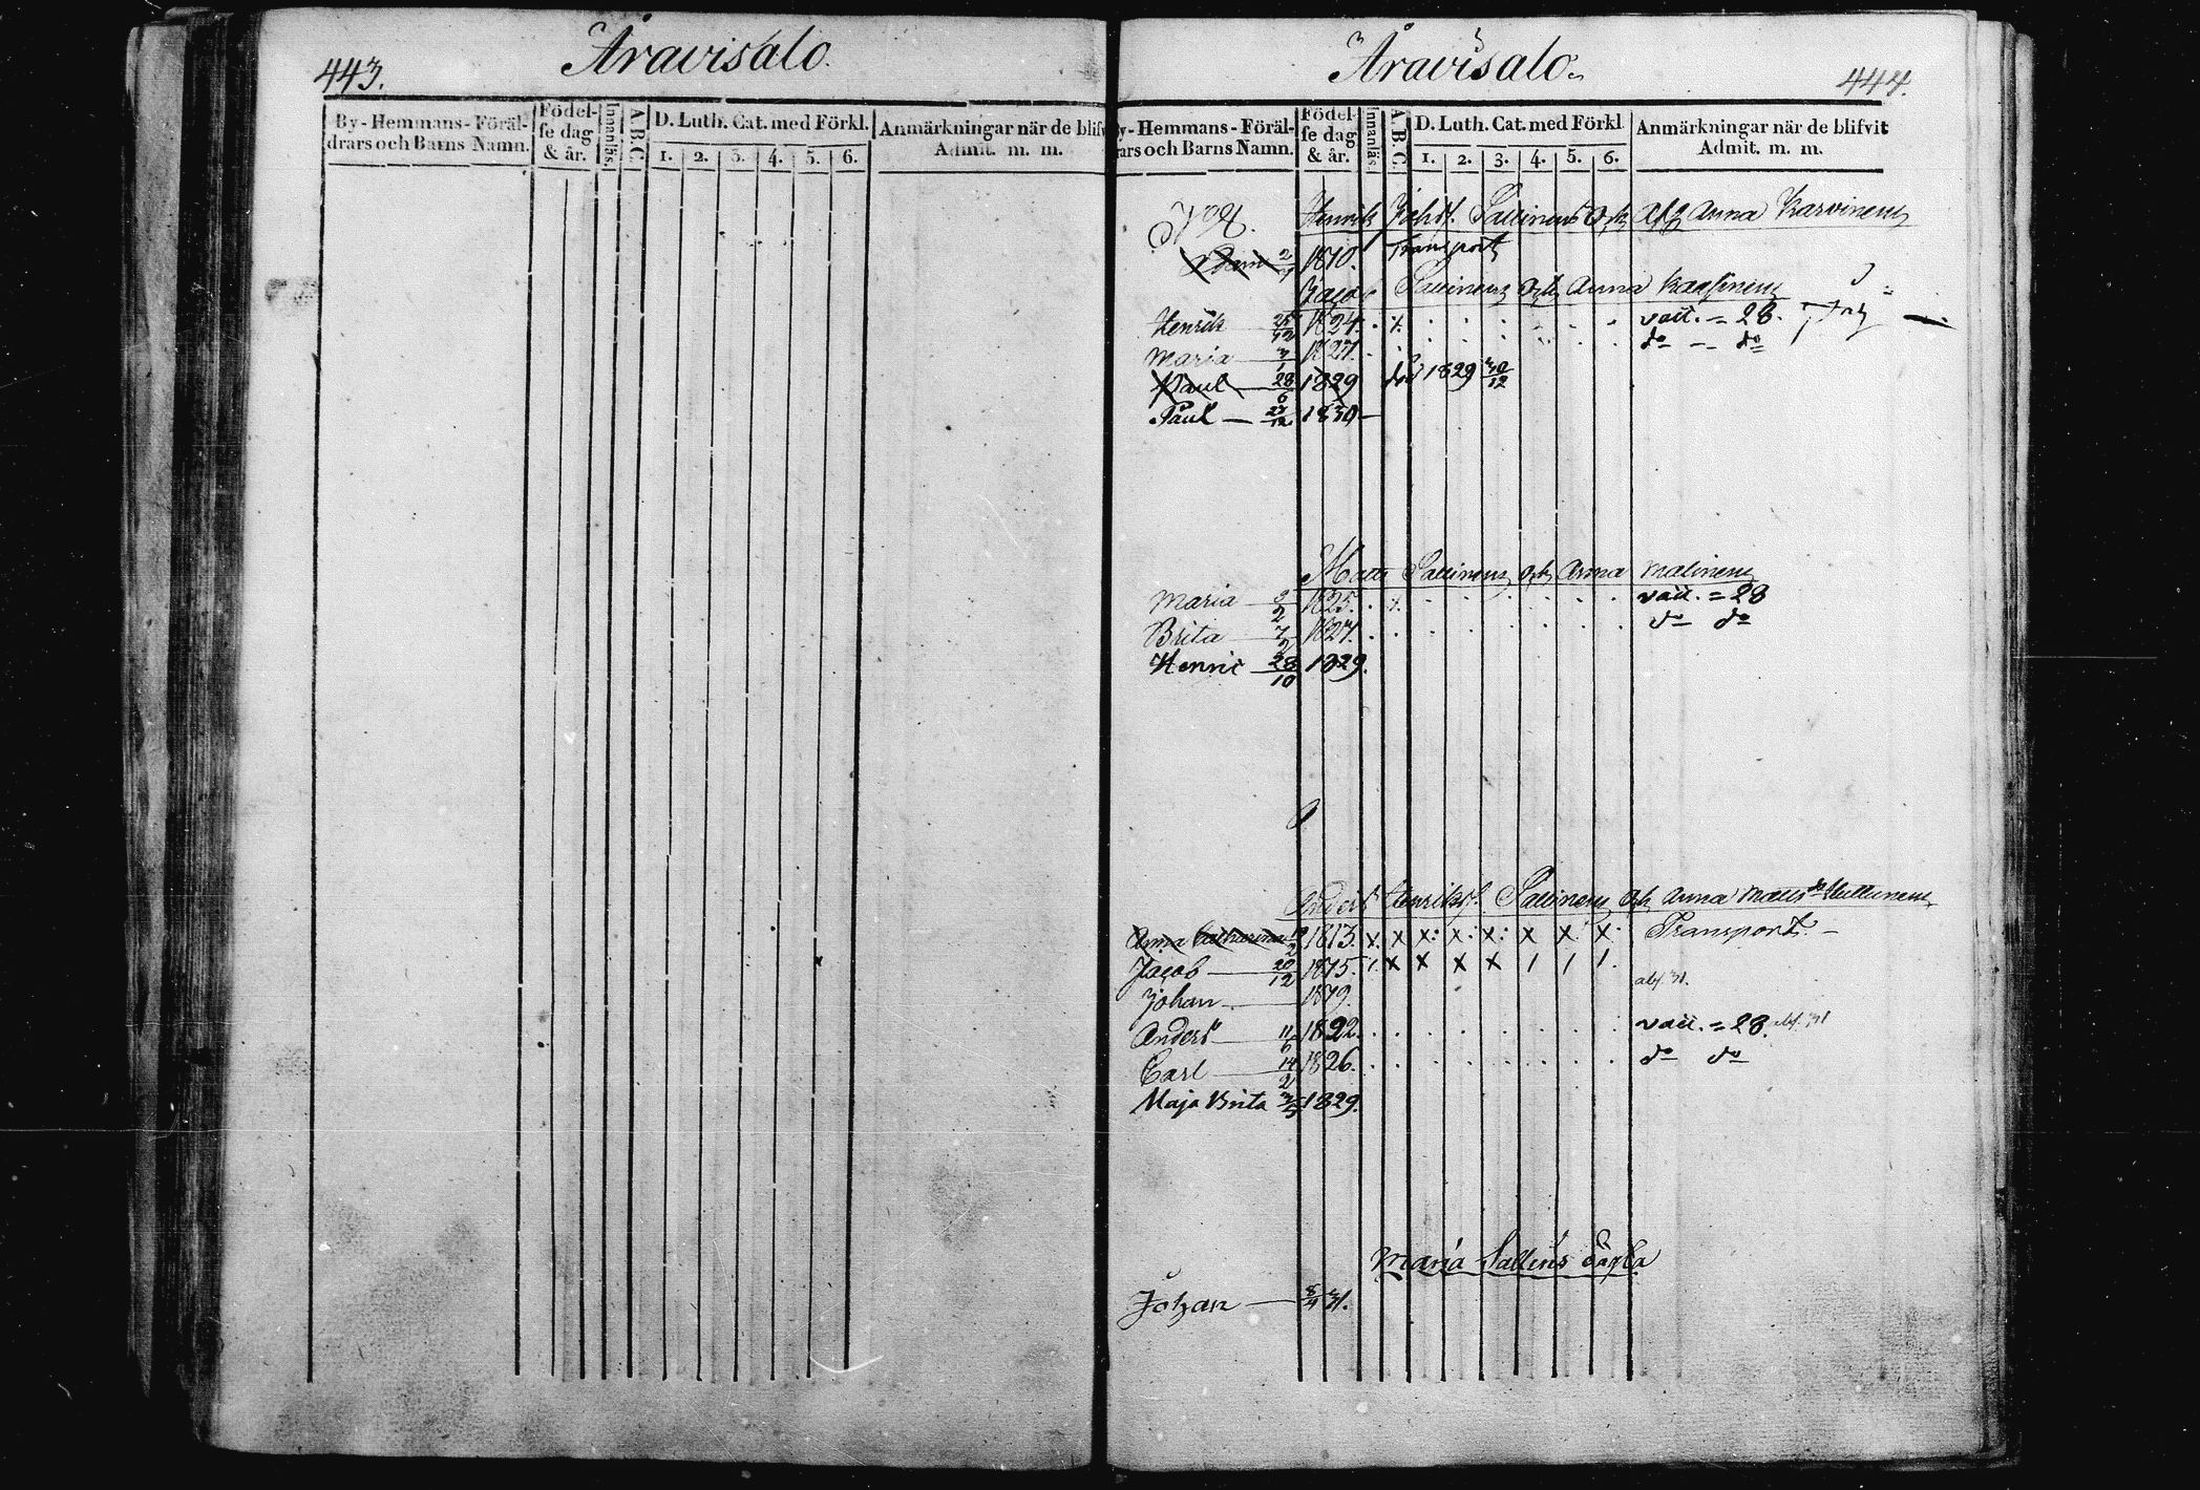 443.
Åravisalo.
By-Hemmans-Föräl-
drars och Barns Namn.
Födel-
se dag
& år.
Innanläs.
A.B.C.
D. Luth. Cat. med Förkl.
1. 2. 3. 4. 5. 6.
Anmärkningar när de blifv
Admit. m. m.
Åravisalo.
444.
y-Hemmans-Föräl-
rars och Barns Namn.
Födel-
se dag
& år.
Innanläs.
A.B.C.
D. Luth. Cat. med Förkl.
1. 2. 3. 4. 5. 6.
Anmärkningar när de blifvit
Admit. m. m.
Henrik Sallinens och Anna Karvinens
1810. Transport
Jacob Sallinens och Anna
Henrik 25/12 1824. vacc. = 28.
Maria 3/1 1827. do - do
Paul 28/6 1829 död 1829 30/12
Paul 1830
Matts Sallinens och Anna Malinens
Maria 3/2 1825. vacc. = 28
Brita 7/2 1827. do do
Henric 28/10 1829.
Anders Henriks. Sallinens och Anna Matts dr
Anna Catharina 1813. x x x x x x x x Transport.
Jacob 20/12 1815. 1 x x x x 1 1 1.
Johan 1819. abs. 31.
Anders 11/6 1822. vacc. = 28. abs. 31
Carl 14/2 1826. do do
Maja Brita 3/5 1829.
Maria Sallins oägta
Johan 31.